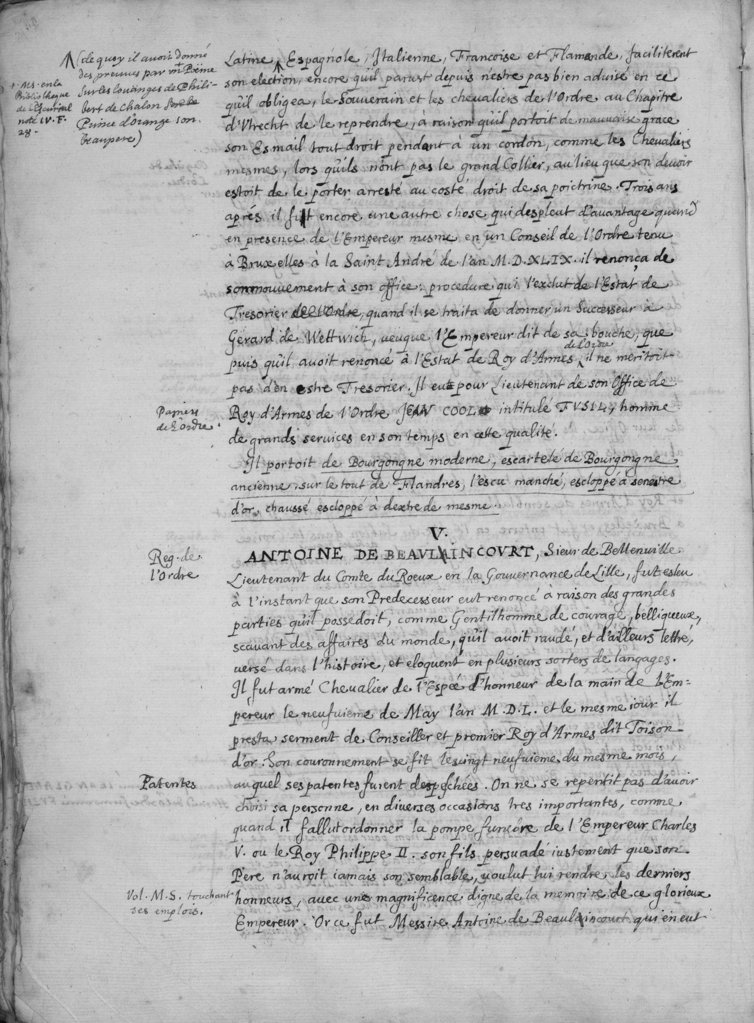 (de quoy il avoit donné
des preuves par un Poëme
sur les louanges de Phili-
bert de Chalon
Prince d'Orange son
beaupere)
Ms. en la
Bibliotheque
de
noté IV. F.
28.
Latine, Espagnole, Italienne, Françoise et Flamende, faciliterent
son election, encore qu'il parust depuis n'estre pas bien advisé en ce
qu'il obligea, le Souverain et les chevaliers de l'Ordre au Chapitre
d'Vtrecht de le reprendre, à raison qu'il portoit de mauvaise grace
son Esmail tout droit pendant à un cordon, comme les Chevaliers
mesmes, lors qu'ils n'ont pas le grand Collier, au lieu que son devoir
estoit de le porter arresté au costé droit de sa poictrine. Trois ans
aprés il fust encore une autre chose, qui despleut d'avantage quand
en presence de l'Empereur mesme en un Conseil de l'Ordre tenu
à Bruxelles à la Saint André de l'an M.D.XLIX. il renonça de
son mouvement à son office: procedure qui l'exclut de l'Estat de
Tresorier de l'Ordre, quand il se traita de donner un Successeur à
Gerard de Weltwich, veu que l'Empereur dit de sa bouche, que
puis qu'il avoit renoncé à l'Estat de Roy d'Armes, il ne meritoit
pas d'en estre Tresorier. Il eut pour Lieutenant de son Office de
Papiers
de l'Ordre.
Roy d'Armes de l'Ordre JEAN COOL intitulé FVSIL, homme
de grands services en son temps en cette qualité.
Il portoit de Bourgongne moderne, escartelé de Bourgongne
ancienne. sur le tout de Flandres, l'escu manché, escloppé à senestre
d'or, chaussé escloppé à dextre de mesme.
V.
Reg. de
l'Ordre
ANTOINE DE BEAULAINCOURT, Sieur de Bellenville
Lieutenant du Comte du Roeux en la Gouvernance de Lille, fut esleu
à l'instant que son Predecesseur eut renoncé a raison des grandes
parties qu'il possedoit, comme Gentilhomme de courage, belliqueux,
scavant des affaires du monde, qu'il avoit raudé, et d'ailleurs lettré,
versé dans l'histoire, et eloquent en plusieurs sortes de langages.
Il fut armé Chevalier de l'Espée d'honneur de la main de l'Em-
pereur le neufvieme de May l'an M.D.L. et le mesme iour il
presta serment de Conseiller et premier Roy d'Armes dit Toison
d'or. Son couronnement se fit le vingt neufvieme du mesme mois,
Patentes
auquel ses patentes furent despechées. On ne se repentit pas d'avoir
choisi sa personne, en diverses occasions tres importantes, comme
quand il fallut ordonner la pompe funebre de l'Empereur Charles
V. ou le Roy Philippe II. son fils, persuadé iustement que son
Pere n'auroit iamais son semblable, voulut lui rendre les derniers
Vol. M.S. touchant
ses emplois.
honneurs, avec une magnificence digne de la memoire de ce glorieux
Empereur. Or ce fut Messire Antoine de Beaulaincourt qui en eut